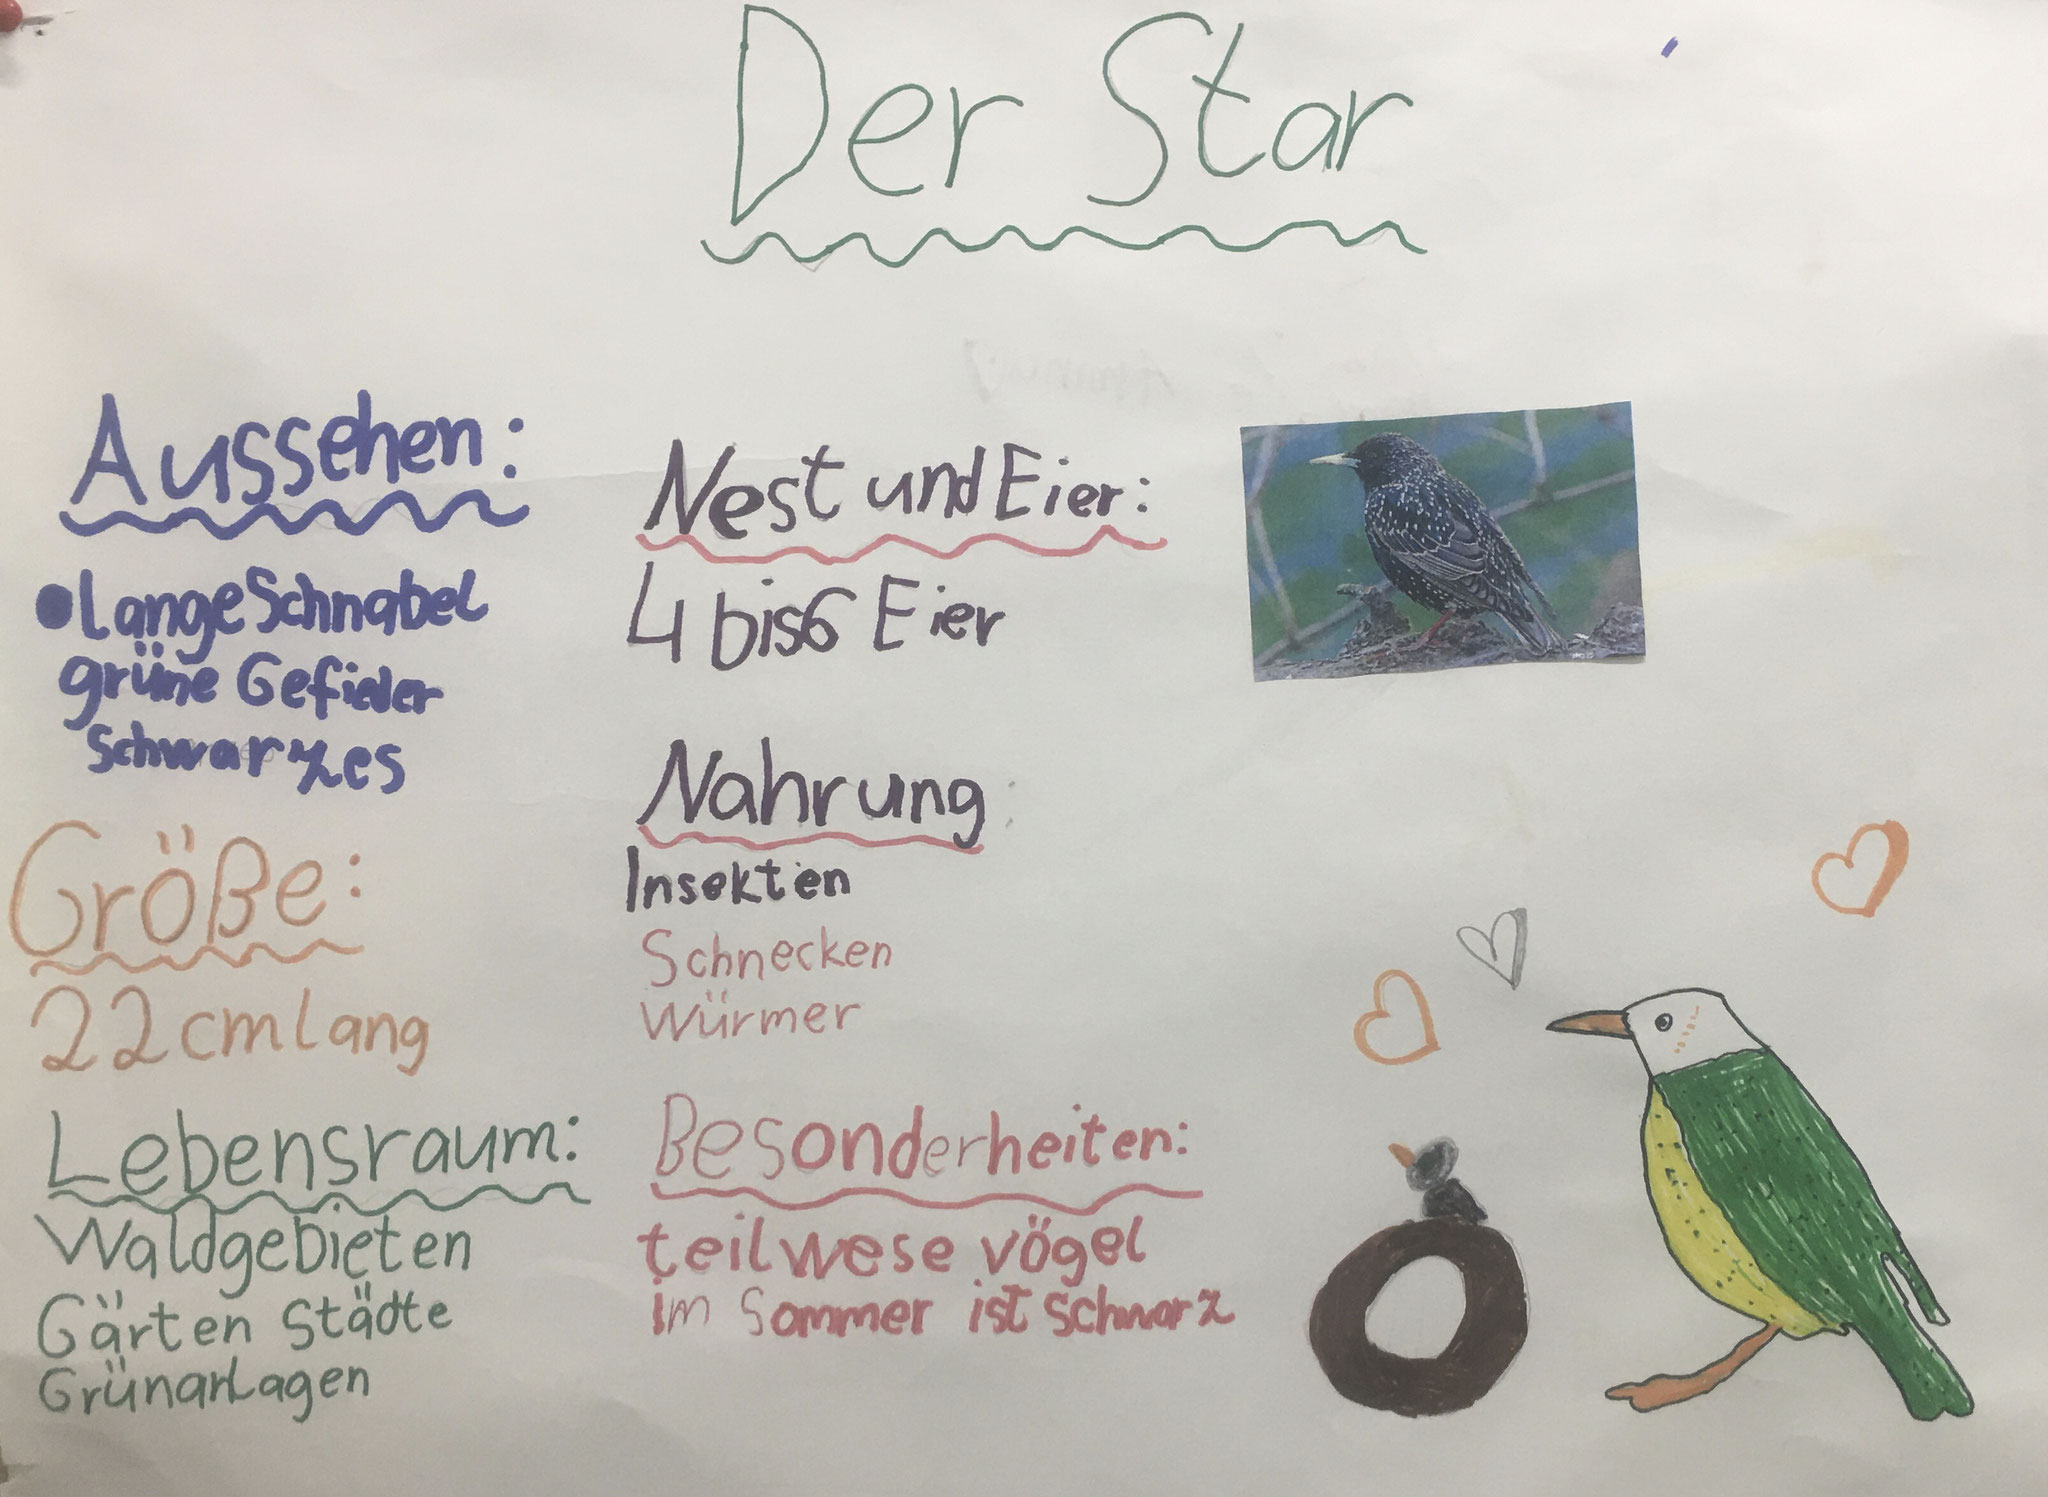 Der Star
Aussehen:
lange Schnabel
grüne Gefieder
schwarzes
Größe:
22cm lang
Lebensraum:
Waldgebieten
Gärten Städte
Grünanlagen
Nest und Eier:
4 bis 6 Eier
Nahrung:
Insekten
Schnecken
Würmer
Besonderheiten:
teilwese vögel
im Sommer ist schwarz